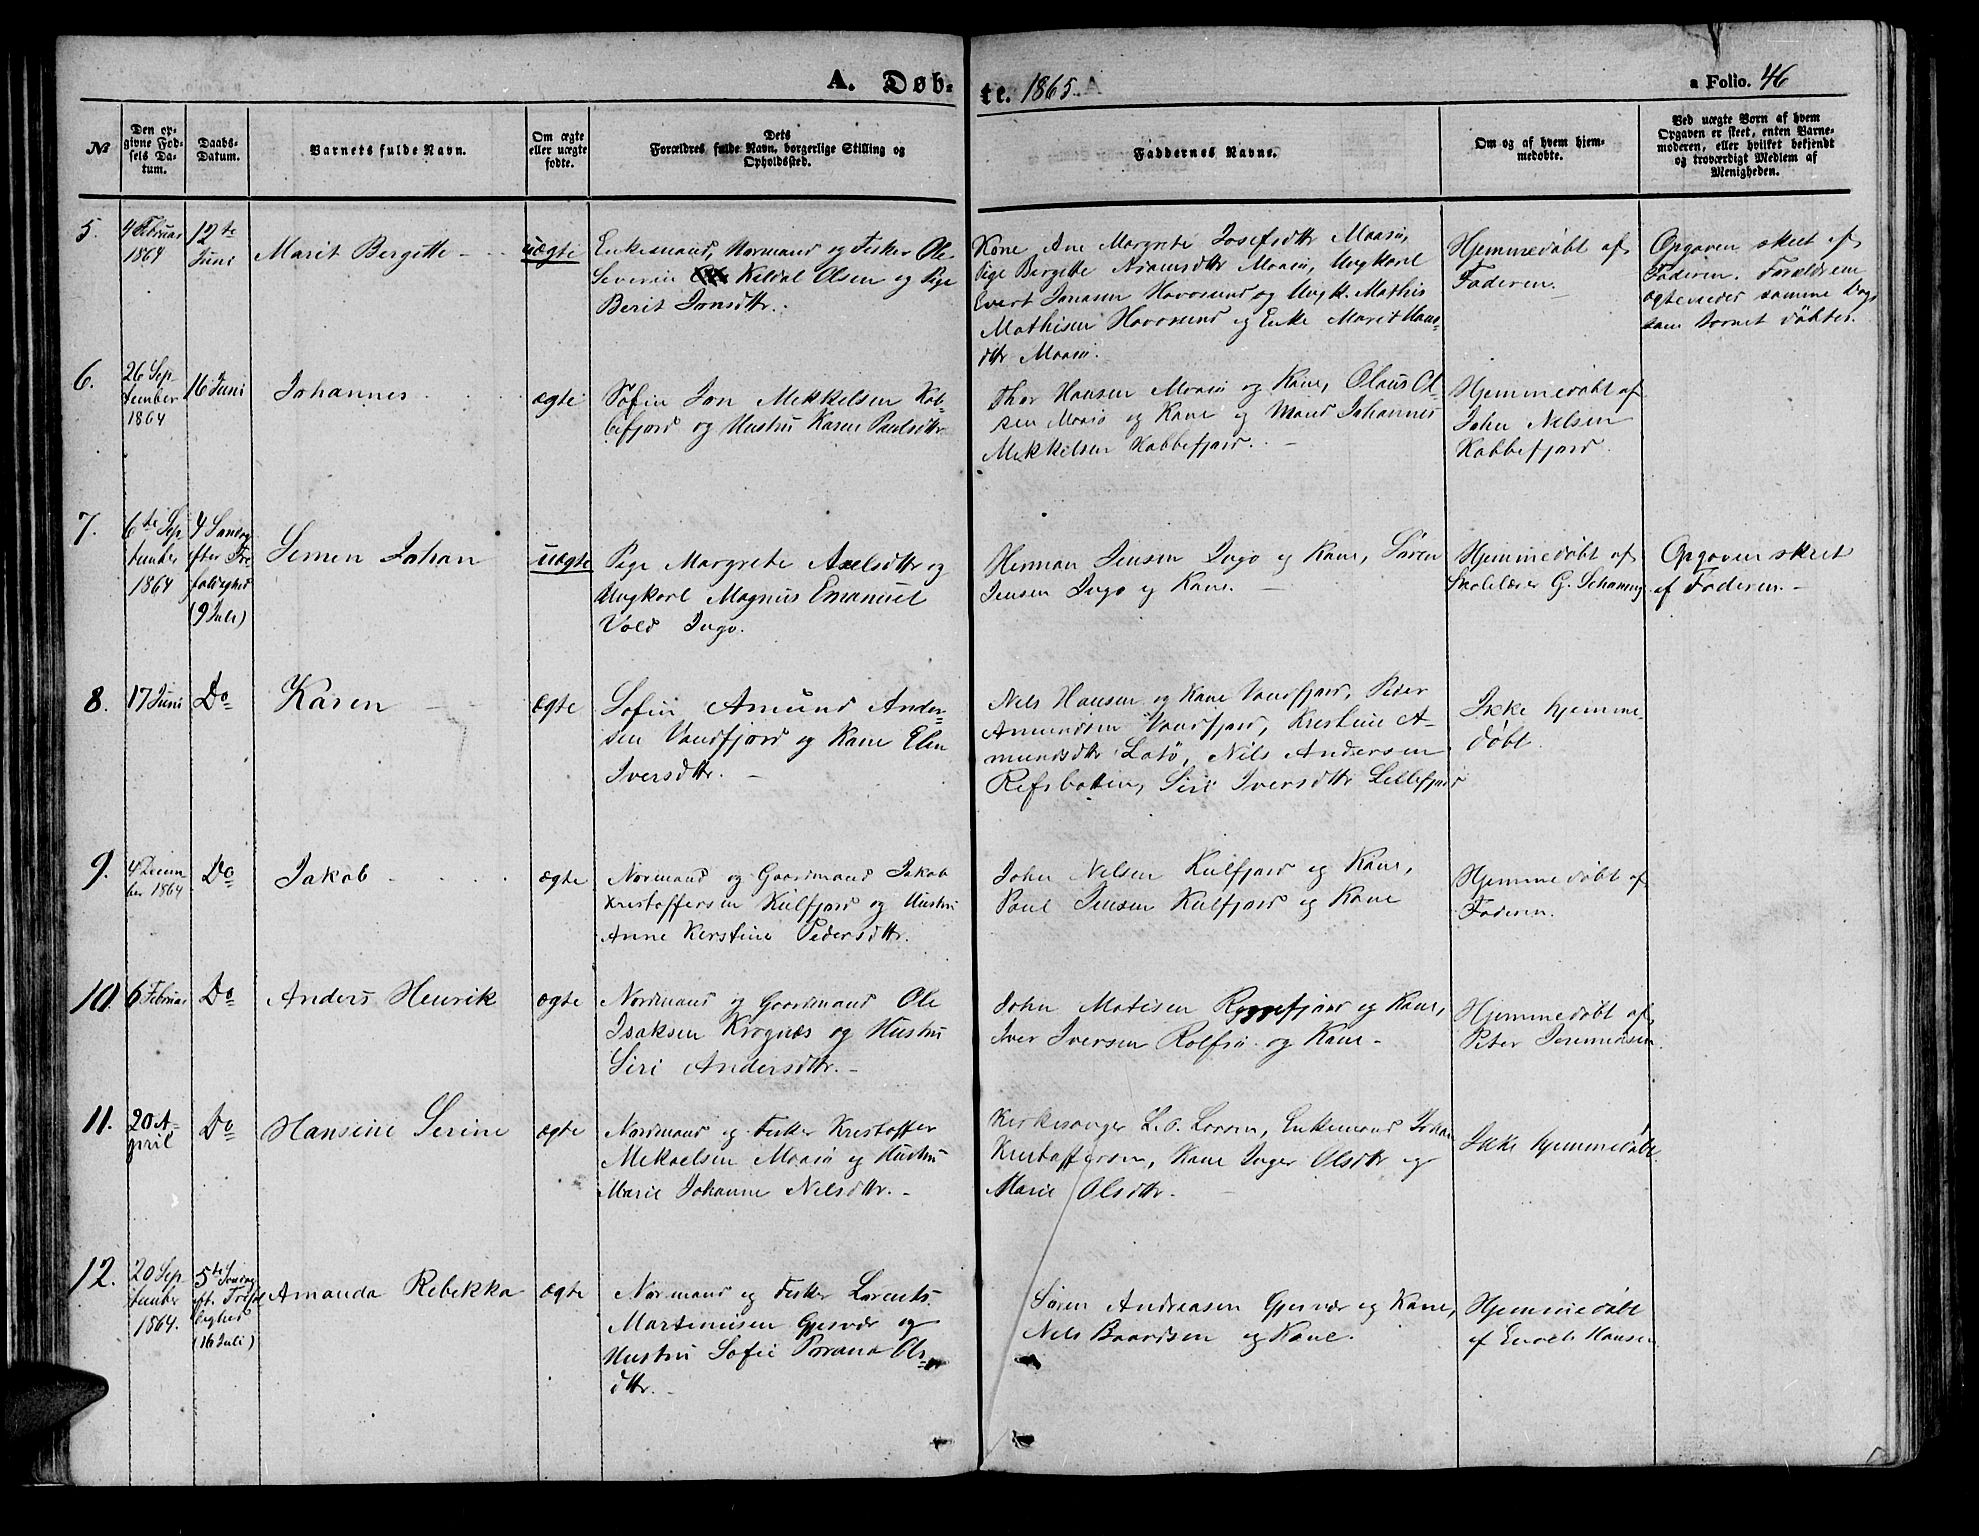 A. Døb-
te. 1865.
a Folio. 46
No
Den op-
givne Fød-
sels Da-
tum.
Daabs-
Datum.
Barnets fulde Navn.
Om ægte
eller uægte
fødte.
Dets
Forældres fulde Navn, borgerlige Stilling og
Opholdssted.
Faddernes Navne.
Om og af hvem hjem-
medøbte.
Ved uægte Børn af hvem
Opgaven er skeet, enten Barne-
moderen, eller hvilket bekjendt
og troværdigt Medlem af
Menigheden.
5.
4 Februar
1864
12te
Juni
Marit Bergitte
uægte
Enkemand, Normand og Fisker Ole
Severin Keldal Olsen og Pige
Berit Jonsdttr.
Kone Ane Margrete Josefsdttr Maasø,
Pige Bergitte Adamsdttr Maasø, Ungkarl
Evert Jonasen Havøsund og Ungk. Mathis
Mathisen Havøsund og Enke Marit Hans-
dttr Maasø.
Hjemmedøbt af
Faderen.
Opgaven skeet af
Faderen. Forældrene
ægtevieder samme Dag
som Barnet døbtes.
6.
26 Sep-
tember
1864
16 Juni
Johannes
ægte
Søfin Jon Mekkelsen Kob-
befjord og Hustru Karen Paulsdttr
Thor Hansen Maasø og Kone, Olaus Ol-
sen Maasø og Kone og Mand Johannes
Mekkelsen Kobbefjord.
Hjemmedøbt af
John Nelsen
Kobbefjord.
7.
6te Sep
tember
1864
4 Søndag
efter Tre
foldighed
(9 Juli)
Semen Johan
uægte
Pige Margrete Axelsdttr og
Ungkarl Magnus Emanuel
Vold Ingø.
Herman Jensen Ingø og Kone, Søren
Jensen Ingø og Kone.
Hjemmedøbt af
Skolelærer G. Schanning
Opgaven skeet
af Faderen.
8.
17 Juni
Do
Karen
Ægte
Sofin Amund Ander-
sen Vandfjord og Kone Elen
Iversdttr.
Nels Hansen og Kone Vandfjord, Peder
Amundsen Vandfjord, Kristine A-
mundsdttr Latø, Nils Andersen
Refsbotten, Siri Iversdttr Lillefjord
Ikke hjemme-
døbt.
9.
4 Decem
ber 1864
Do
Jakob
ægte
Normand og Gaardmand Jakob
Kristoffersen Kulfjord og Hustru
Anne Kerstine Pedersdttr.
John Nelsen Kulfjord og Kone,
Paul Jensen Kulfjord og Kone
Hjemmedøbt af
Faderen.
10.
6 Februar
Do
Anders Henrik
ægte
Nordmand og Gaardmand Ole
Isaksen Krognæs og Hustru
Siri Andersdttr.
John Matisen Ryggefjord og Kone,
Iver Iversen Rolfsø og Kone.
Hjemmedøbt af
Peter Jeremiasen.
11.
20 A-
pril
Do
Hansine Serine
ægte
Nordmand og Fisker Kristoffer
Mekaelsen Maasø og Hustru
Marie Johanne Nelsdttr.
Kirkesanger L. O. Larsen, Enkemand Johan
Kristoffersen, Kone Inger Olsdttr og
Marie Olsdttr.
Ikke hjemmedøbt.
12.
20 Sep-
tember
1864.
5te Søndag
eft. Trefol
lighed
(16 Juli)
Amanda Rebekka
ægte
Normand og Fisker Lorents
Martinusen Gjesvær og
Hustru Sofie Ols-
dttr.
Søren Andreasen Gjesvær og Kone,
Nels Baardsen og Kone.
Hjemmedøbt
af Enoch Hansen